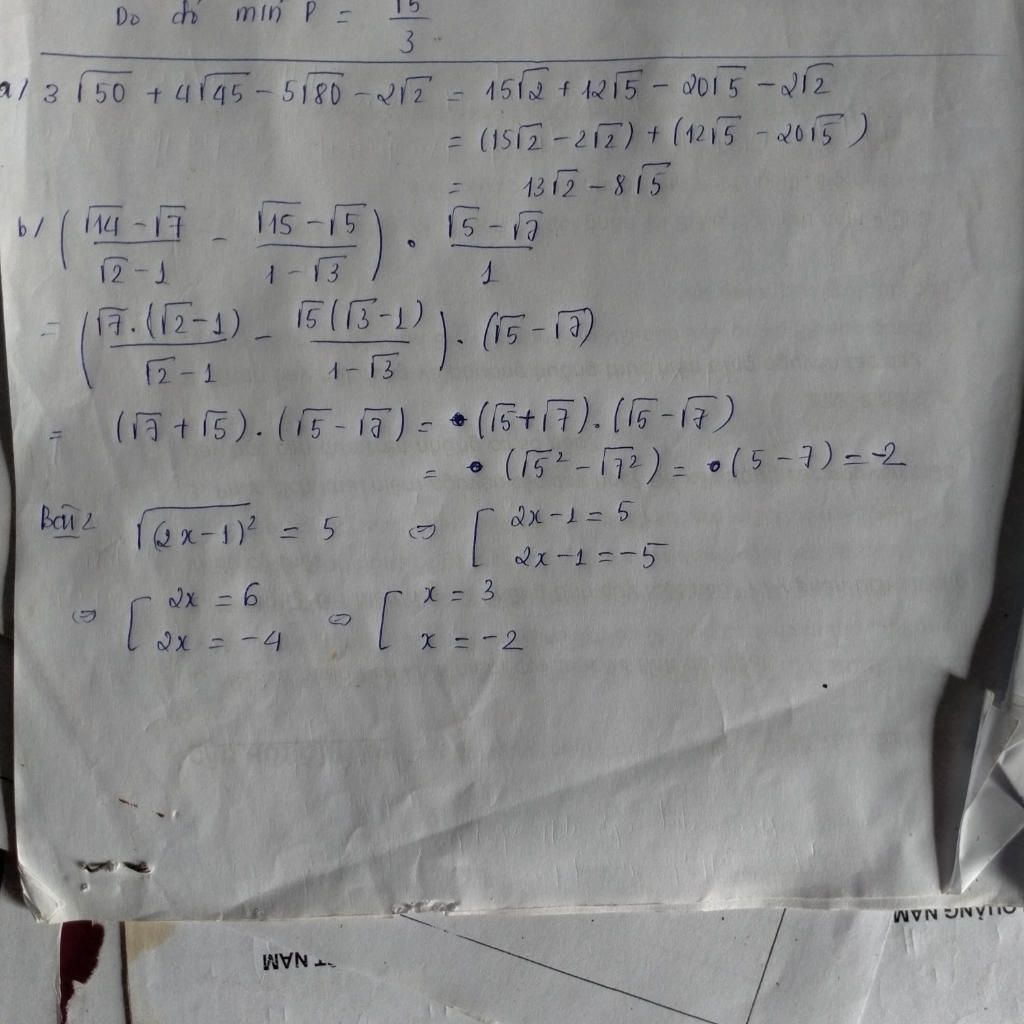 Do đó min P = √5/3
a/ 3√50 + 4√45 - 5√80 - 2√2 = 15√2 + 12√5 - 20√5 - 2√2
= (15√2 - 2√2) + (12√5 - 20√5)
= 13√2 - 8√5
b/ ((√14 - √7)/(√2 - 1) - (√15 - √5)/(1 - √3)) . (√5 - √7)/1
= (√7.(√2 - 1)/(√2 - 1) - √5(√3 - 1)/(1 - √3)) . (√5 - √7)
= (√7 + √5).(√5 - √7) = (√5 + √7).(√5 - √7)
= (√5² - √7²) = (5 - 7) = -2
Bài 2 √(2x-1)² = 5 ⇔ [ 2x-1 = 5
2x-1 = -5
⇔ [ 2x = 6 ⇔ [ x = 3
2x = -4 x = -2
QUẢNG NAM
T NAM